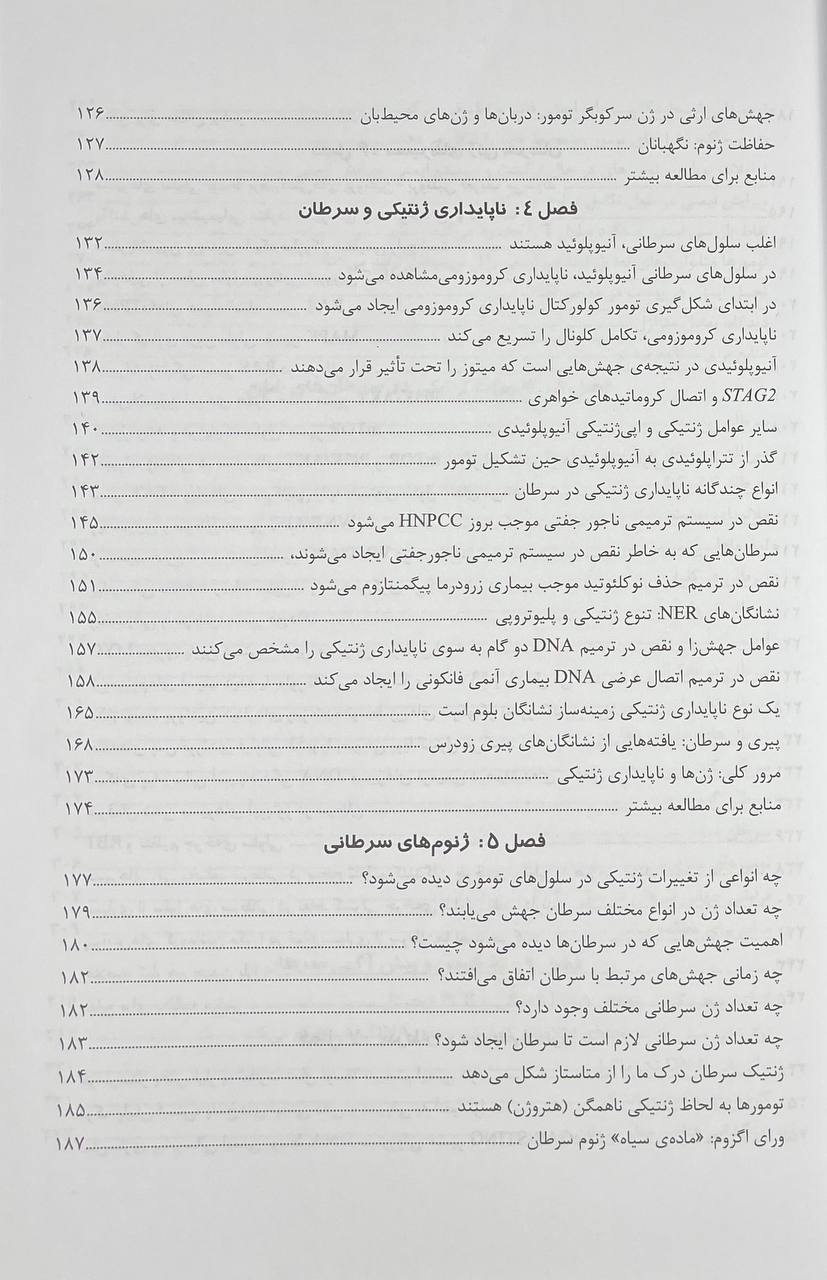 جهش‌های ارثی در ژن سرکوبگر تومور: دربان‌ها و ژن‌های محیط‌بان ........ ۱۲۶
حفاظت ژنوم: نگهبانان ........ ۱۲۷
منابع برای مطالعه بیشتر ........ ۱۲۸
فصل ٤: ناپایداری ژنتیکی و سرطان
اغلب سلول‌های سرطانی، آنیوپلوئید هستند ........ ۱۳۲
در سلول‌های سرطانی آنیوپلوئید، ناپایداری کروموزومی‌مشاهده می‌شود ........ ۱۳۴
در ابتدای شکل‌گیری تومور کولورکتال ناپایداری کروموزومی ایجاد می‌شود ........ ۱۳۶
ناپایداری کروموزومی، تکامل کلونال را تسریع می‌کند ........ ۱۳۷
آنیوپلوئیدی در نتیجه‌ی جهش‌هایی است که میتوز را تحت تأثیر قرار می‌دهند ........ ۱۳۸
STAG2 و اتصال کروماتیدهای خواهری ........ ۱۳۹
سایر عوامل ژنتیکی و اپی‌ژنتیکی آنیوپلوئیدی ........ ۱۴۰
گذر از تتراپلوئیدی به آنیوپلوئیدی حین تشکیل تومور ........ ۱۴۲
انواع چندگانه ناپایداری ژنتیکی در سرطان ........ ۱۴۳
نقص در سیستم ترمیمی ناجور جفتی موجب بروز HNPCC می‌شود ........ ۱۴۵
سرطان‌هایی که به خاطر نقص در سیستم ترمیمی ناجورجفتی ایجاد می‌شوند، ........ ۱۵۰
نقص در ترمیم حذف نوکلئوتید موجب بیماری زرودرما پیگمنتازوم می‌شود ........ ۱۵۱
نشانگان‌های NER: تنوع ژنتیکی و پلیوتروپی ........ ۱۵۵
عوامل جهش‌زا و نقص در ترمیم DNA دو گام به سوی ناپایداری ژنتیکی را مشخص می‌کنند ........ ۱۵۷
نقص در ترمیم اتصال عرضی DNA بیماری آنمی فانکونی را ایجاد می‌کند ........ ۱۵۸
یک نوع ناپایداری ژنتیکی زمینه‌ساز نشانگان بلوم است ........ ۱۶۵
پیری و سرطان: یافته‌هایی از نشانگان‌های پیری زودرس ........ ۱۶۸
مرور کلی: ژن‌ها و ناپایداری ژنتیکی ........ ۱۷۳
منابع برای مطالعه بیشتر ........ ۱۷۴
فصل ۵: ژنوم‌های سرطانی
چه انواعی از تغییرات ژنتیکی در سلول‌های توموری دیده می‌شود؟ ........ ۱۷۷
چه تعداد ژن در انواع مختلف سرطان جهش می‌یابند؟ ........ ۱۷۹
اهمیت جهش‌هایی که در سرطان‌ها دیده می‌شود چیست؟ ........ ۱۸۰
چه زمانی جهش‌های مرتبط با سرطان اتفاق می‌افتند؟ ........ ۱۸۲
چه تعداد ژن سرطانی مختلف وجود دارد؟ ........ ۱۸۲
چه تعداد ژن سرطانی لازم است تا سرطان ایجاد شود؟ ........ ۱۸۳
ژنتیک سرطان درک ما را از متاستاز شکل می‌دهد ........ ۱۸۴
تومورها به لحاظ ژنتیکی ناهمگن (هتروژن) هستند ........ ۱۸۵
ورای اگزوم: «ماده‌ی سیاه» ژنوم سرطان ........ ۱۸۷